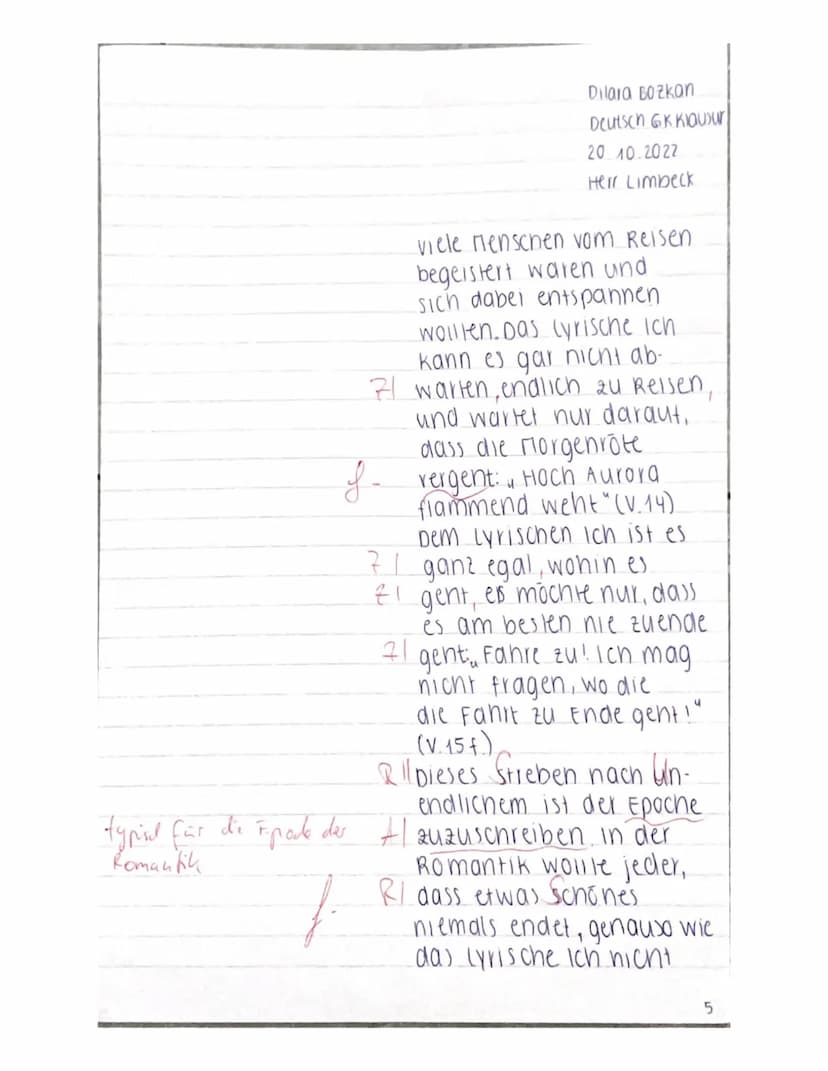 Dilara Bozkan
Deutsch GK Klausur
20.10.2022
Herr Limbeck
viele Menschen vom Reisen
begeistert waren und
sich dabei entspannen
wollten. Das lyrische Ich
kann es gar nicht ab-
Z| warten, endlich zu Reisen,
und wartet nur darauf,
dass die Morgenröte
f- vergeht: „Hoch Aurora
flammend weht" (V.14)
Dem Lyrischen Ich ist es
Z| ganz egal, wohin es
Z| geht, es möchte nur, dass
es am besten nie zuende
Z| geht „Fahre zu! Ich mag
nicht fragen, wo die
die Fahrt zu Ende geht!"
(V.15f.)
R|| Dieses Streben nach Un-
endlichem ist der Epoche
typisch für die Epoche der A| zuzuschreiben. in der
Romantik Romantik wollte jeder,
R| dass etwas Schönes
f- niemals endet, genauso wie
das lyrische Ich nicht
5